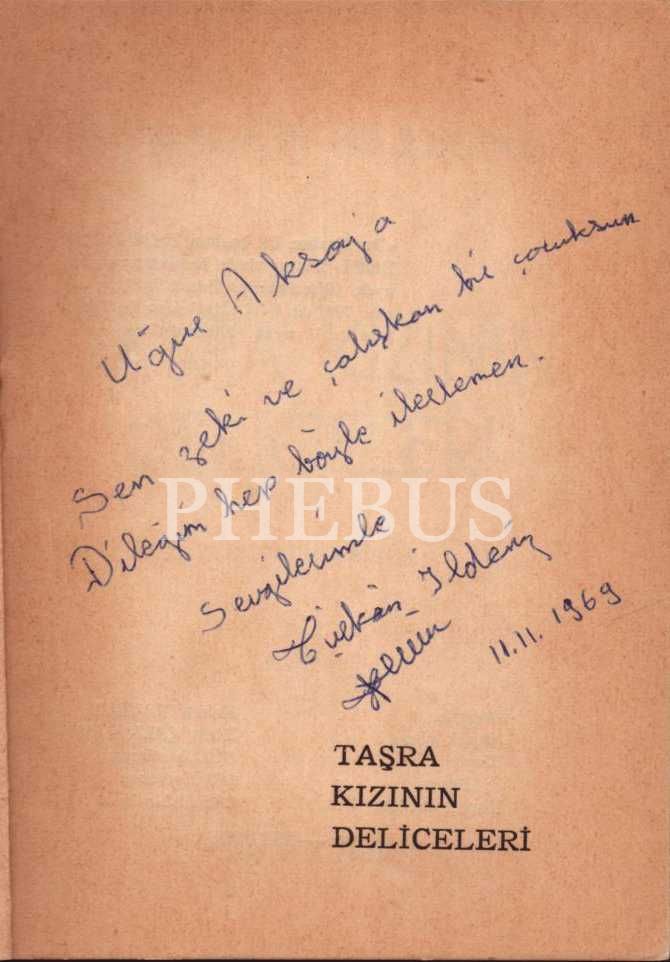 Uğur Aksoy'a
Sen zeki ve çalışkan bir çocuksun
Dileğim hep böyle ilerlemen.
Sevgilerimle
Türkân İldeniz
11.11.1969
PHEBUS
TAŞRA
KIZININ
DELİCELERİ